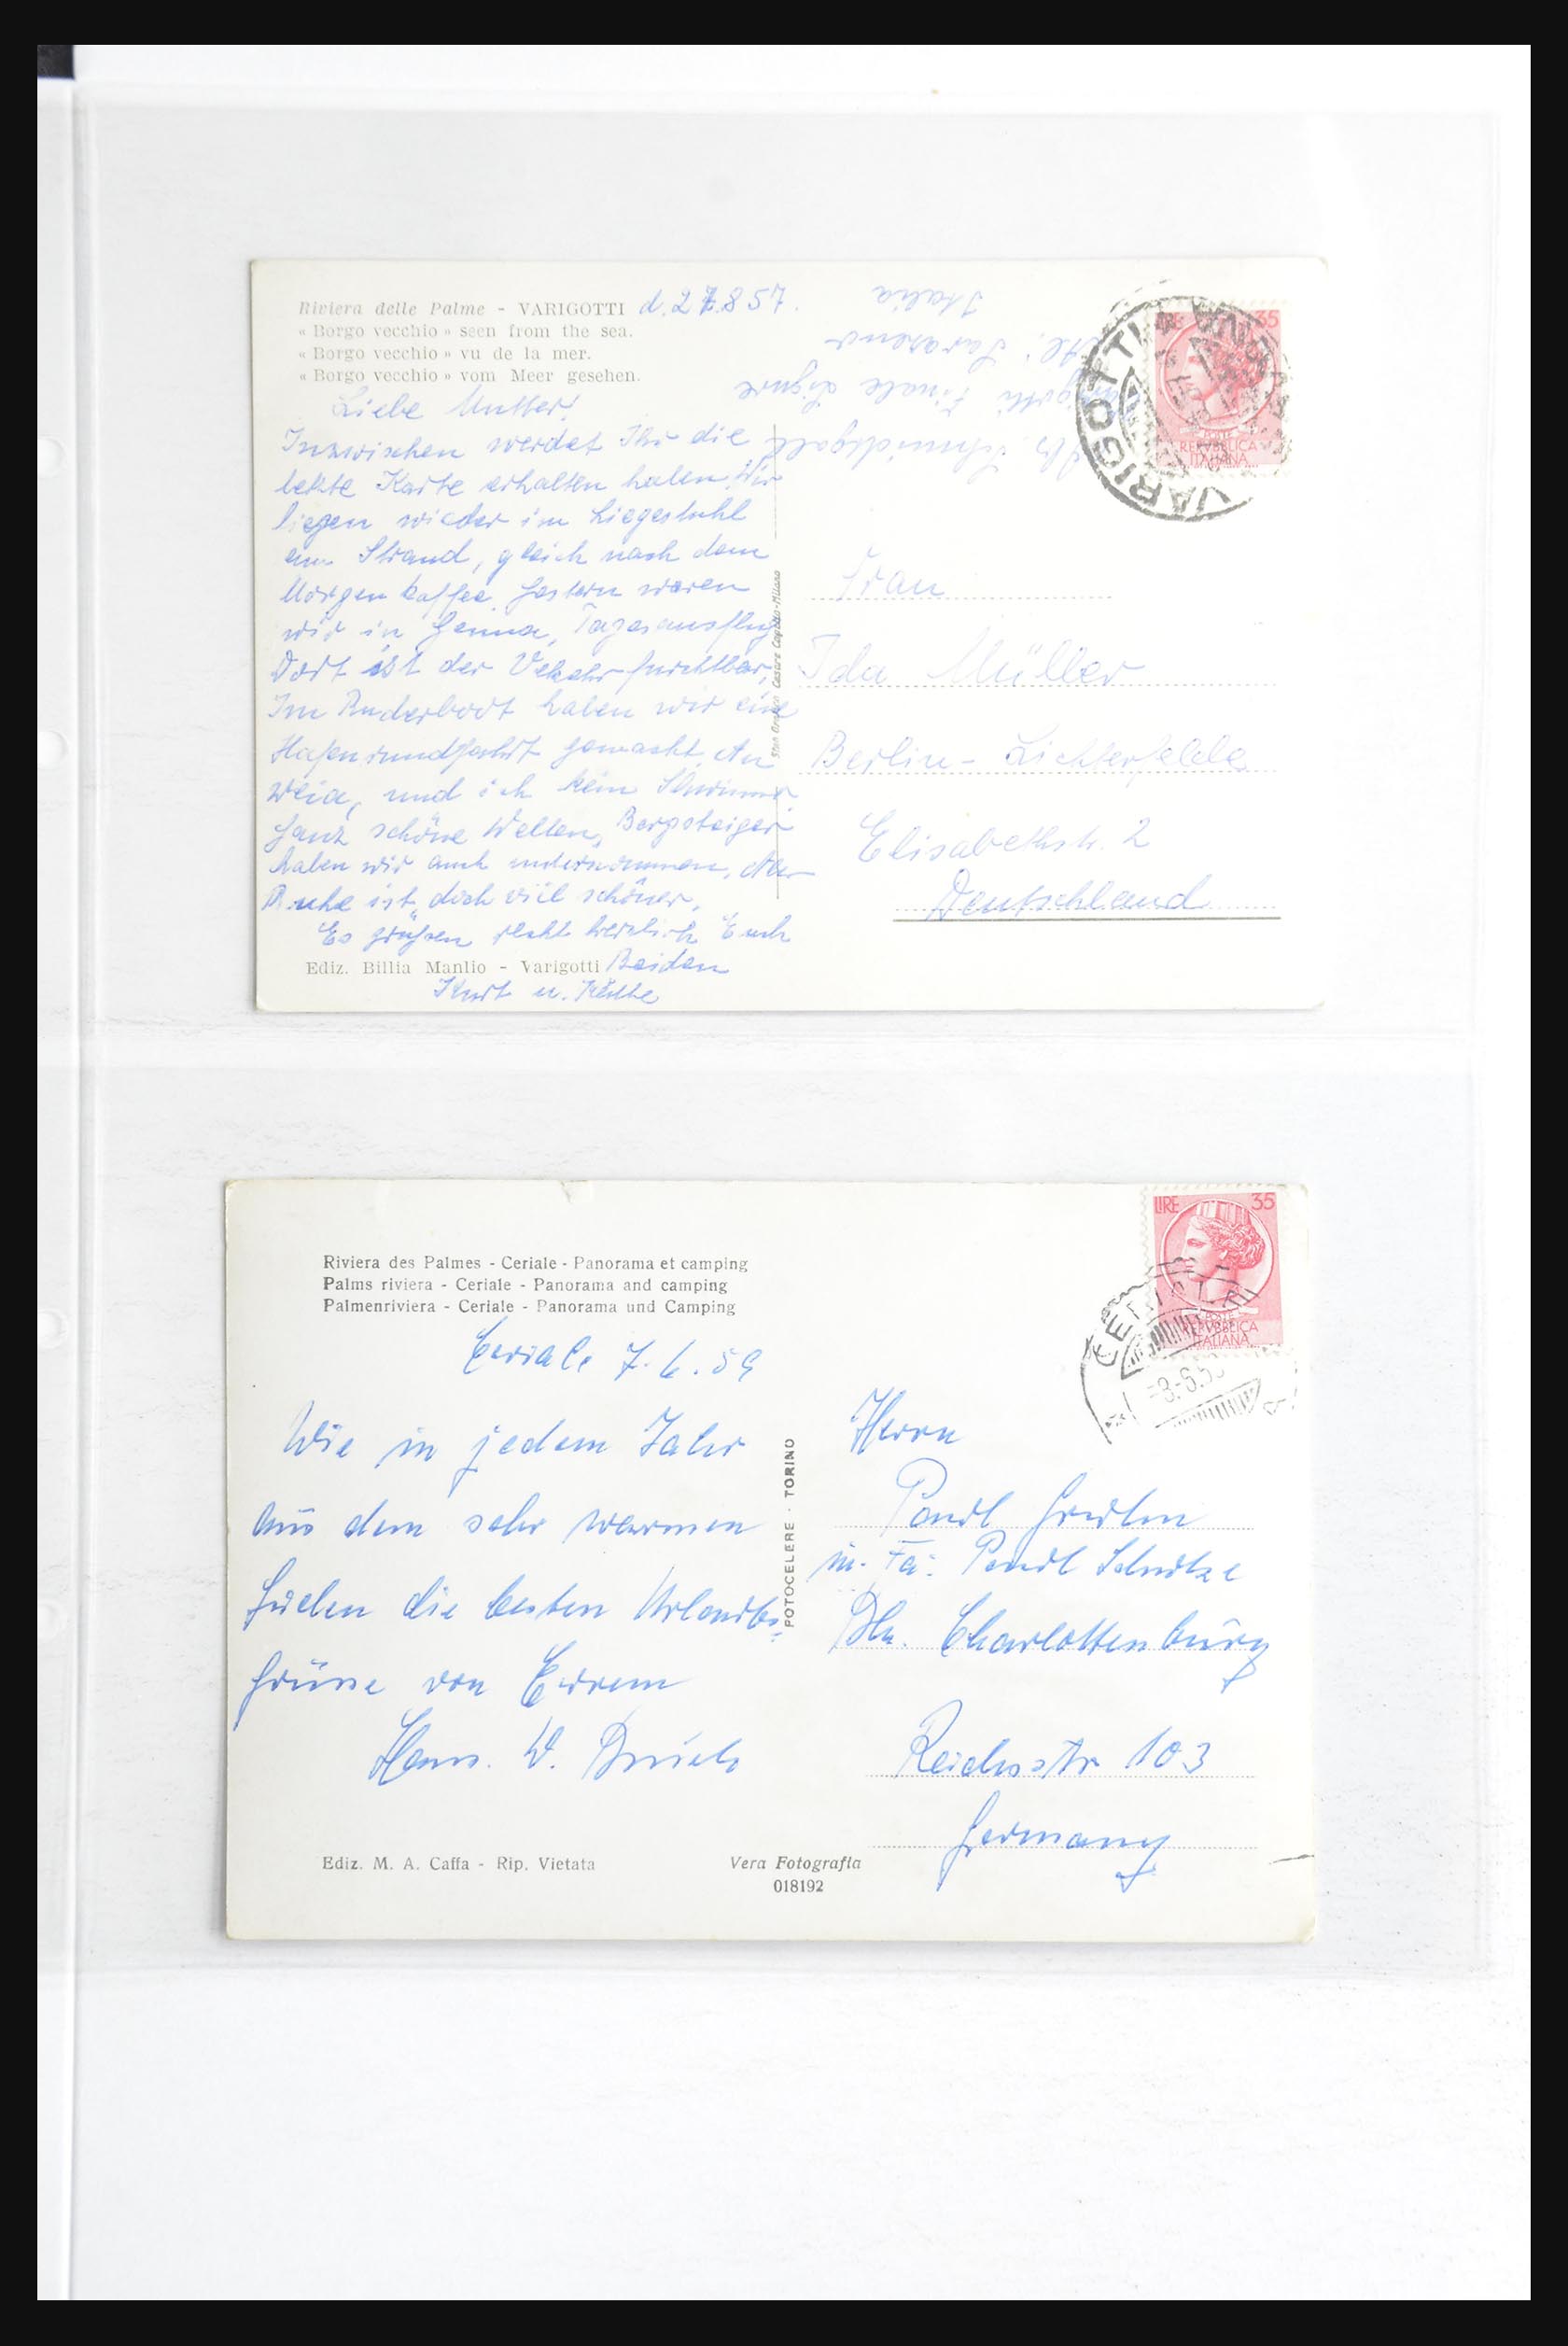 Riviera delle Palme - VARIGOTTI d. 27.8 57.
« Borgo vecchio » seen from the sea.
« Borgo vecchio » vu de la mer.
« Borgo vecchio » vom Meer gesehen.
Liebe Mutter!
Inzwischen werdet Ihr die
letzte Karte erhalten haben. Wir
liegen wieder im Liegestuhl
am Strand, gleich nach dem
Morgenkaffee. Gestern waren
wir in Genua, Tagesausflug
Dort ist der Vekehr furchtbar,
Im Ruderboot haben wir eine
Hafenrundfahrt gemacht. Au
weia, und ich kein Schwimmer.
Ganz schöne Wellen, Bergsteiger
haben wir auch unternommen. Aber
Ruhe ist doch viel schöner.
Es grüßen recht herzlich Euch
Ediz. Billia Manlio - Varigotti Beiden
Kurt u. Käthe
Finale Ligure
Saraceno
Italia
LIRE 35
POSTE
REPVBBLICA
ITALIANA
VARIGOTTI
Frau
Ida Müller
Berlin - Lichterfelde
Elisabethstr. 2
Deutschland
Riviera des Palmes - Ceriale - Panorama et camping
Palms riviera - Ceriale - Panorama and camping
Palmenriviera - Ceriale - Panorama und Camping
Ceriale 7. 6. 59
Wie in jedem Jahr
aus dem sehr warmen
Süden die besten Urlaubs-
grüsse von Eurem
Hans. W.
FOTOCELERE · TORINO
LIRE 35
POSTE
REPVBBLICA
ITALIANA
-8.-6.59
Herrn
in. Fa: Pandl
Bln. Charlottenburg
Reichsstr 103
Germany
Ediz. M. A. Caffa - Rip. Vietata
Vera Fotografia
018192